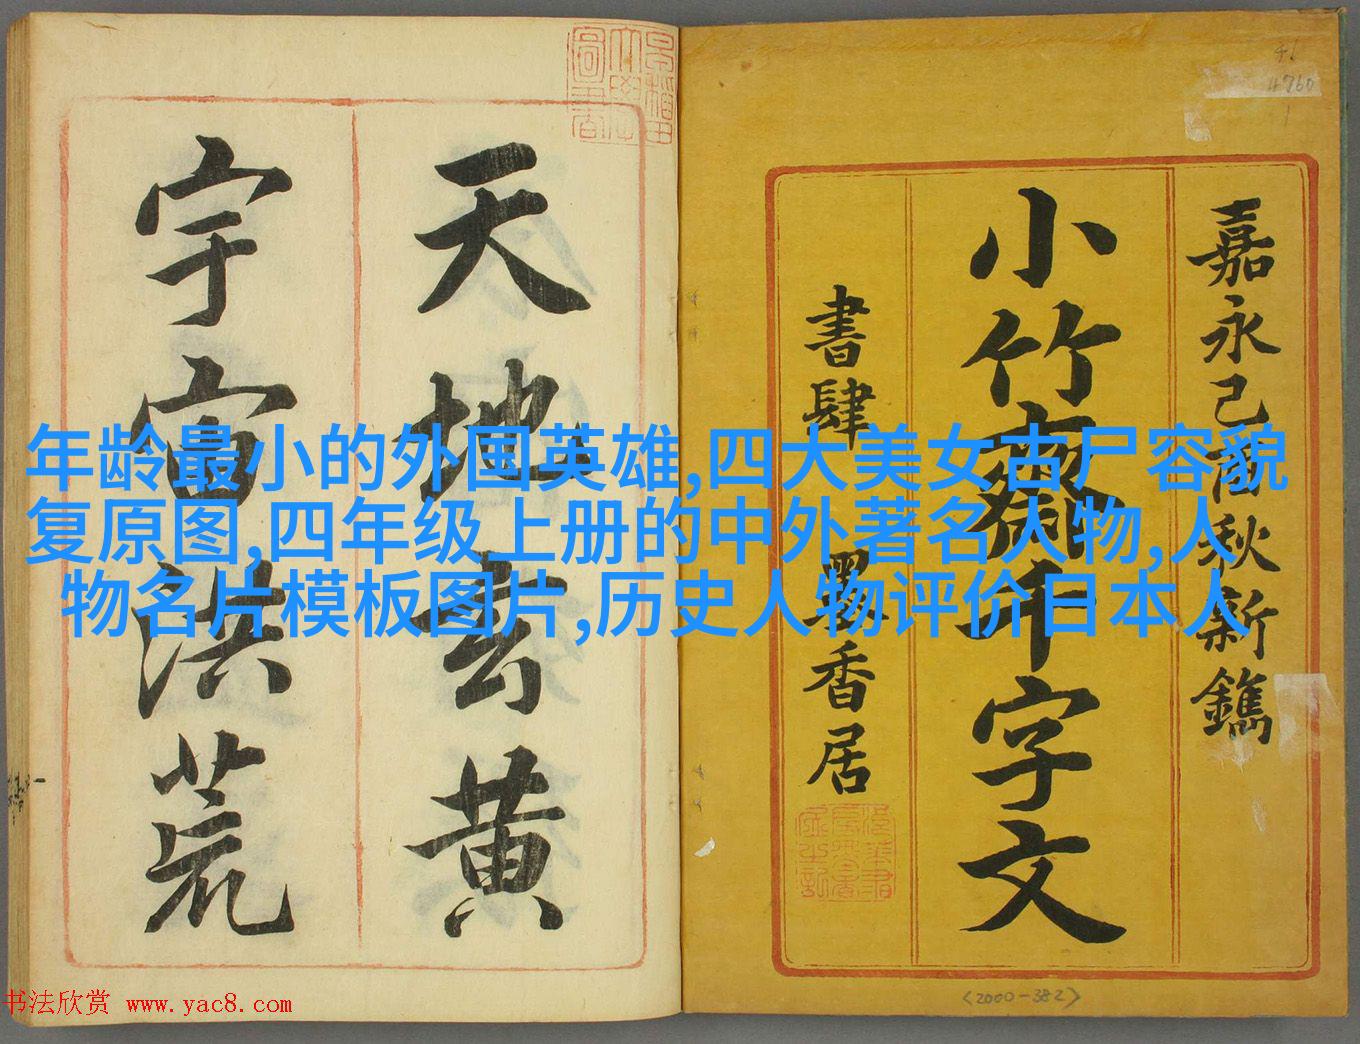 嘉永己酉秋新鐫
小竹齋千字文
書肆 墨香居
天地玄黄
宇宙洪荒
年龄最小的外国英雄,四大美女古尸容貌
复原图,四年级上册的中外著名人物,人
物名片模板图片,历史人物评价日本人
书法欣赏 www.yac8.com
4760
<2000-382>